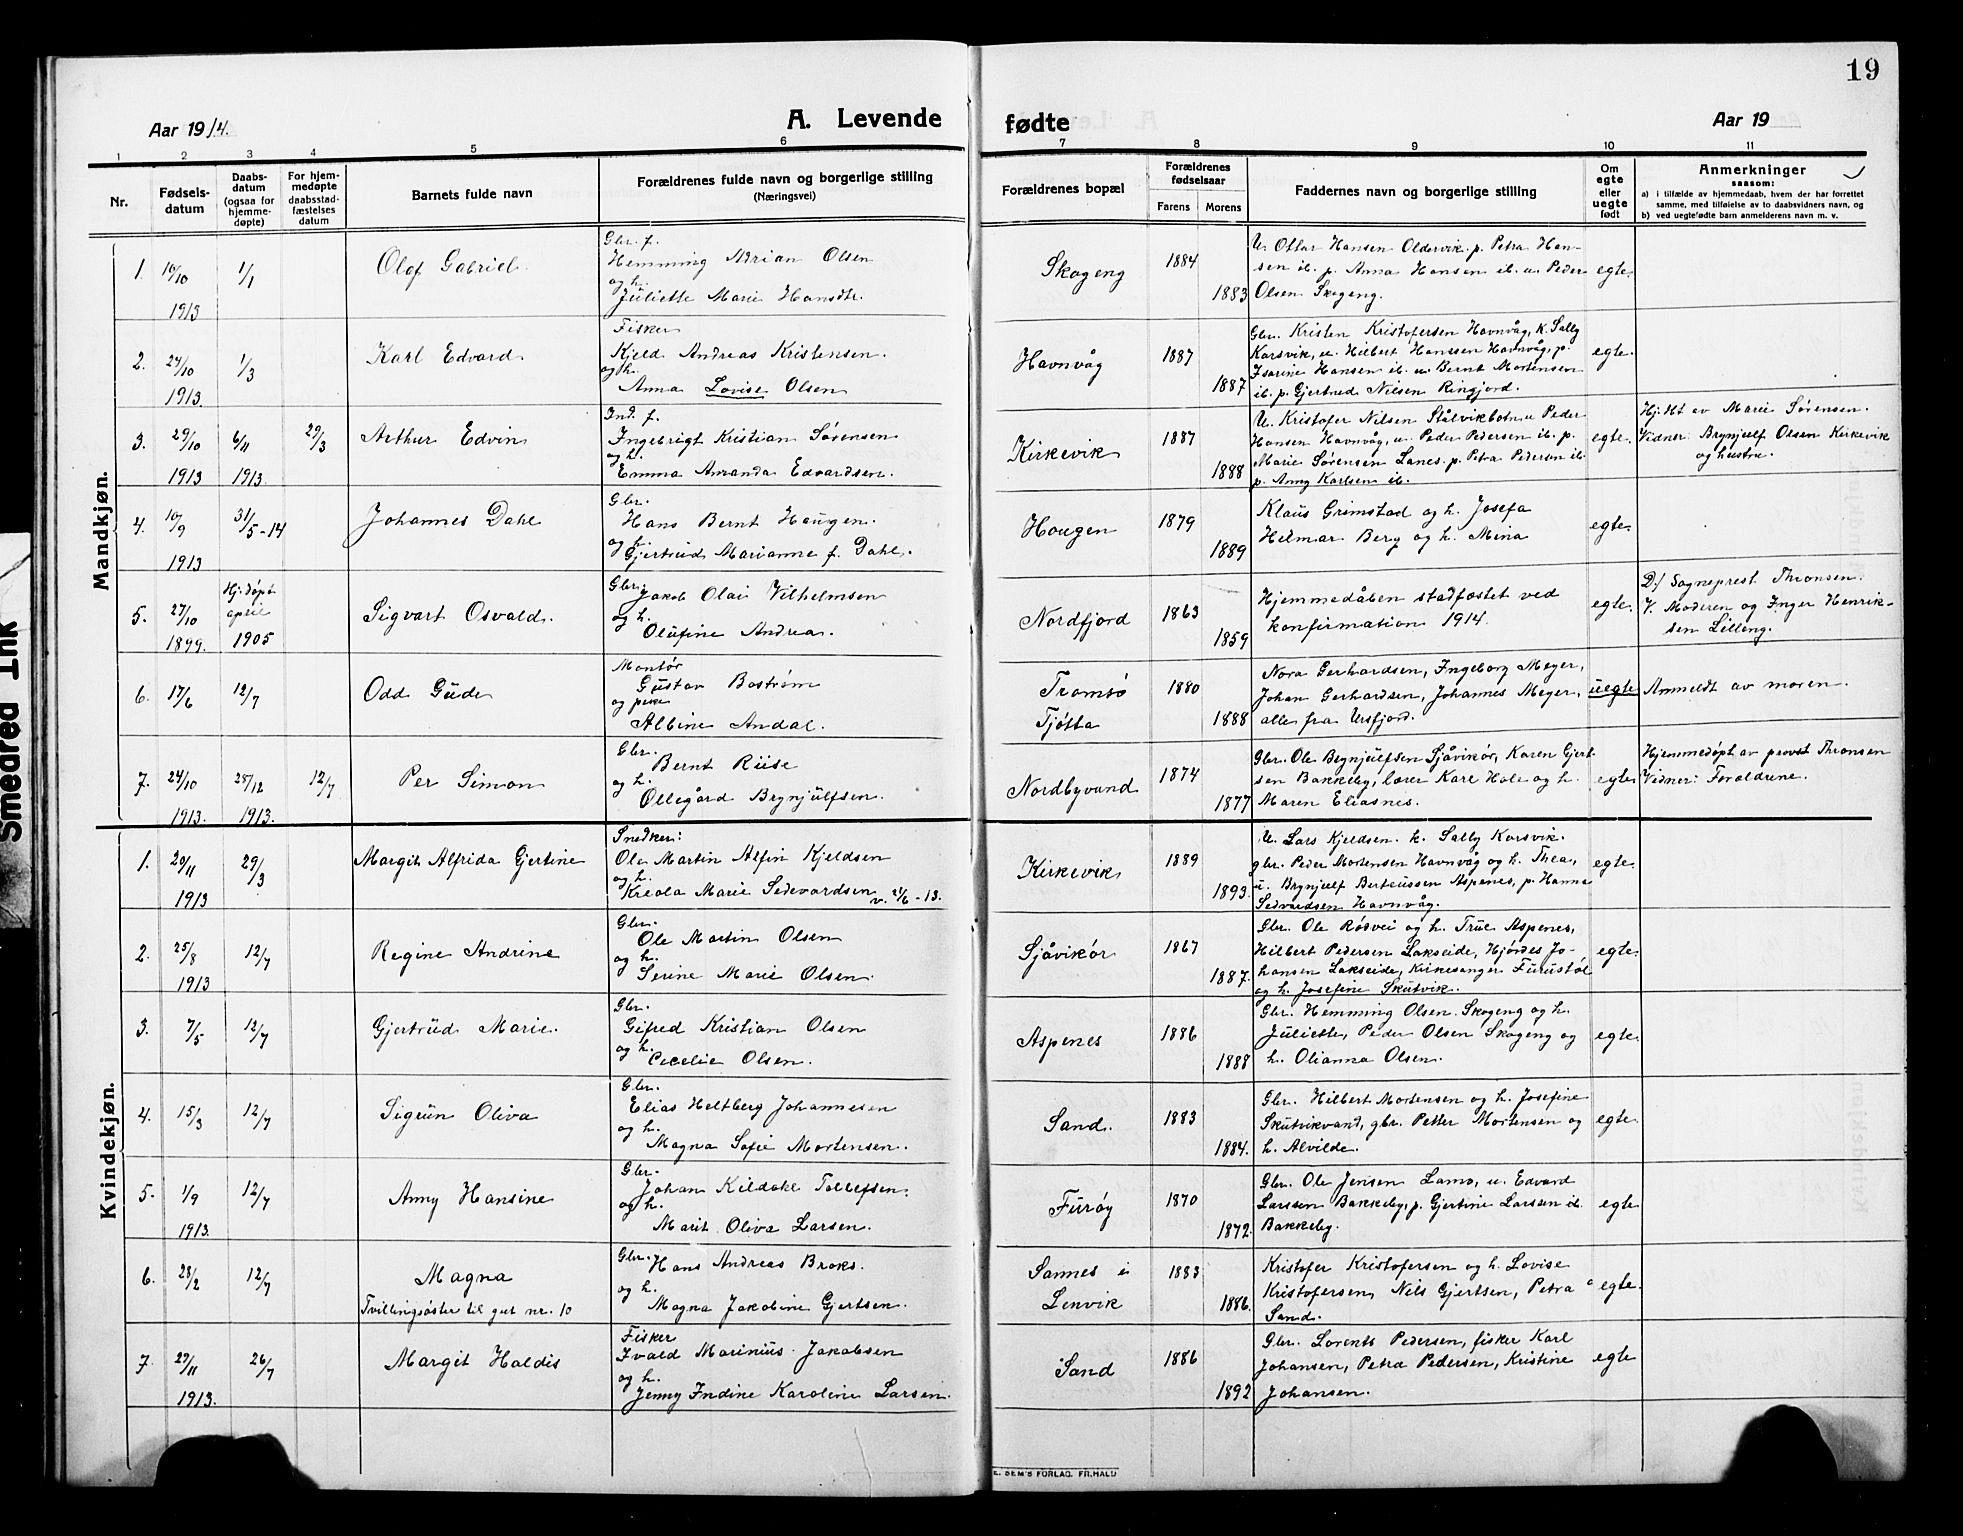 19
Aar 1914.
A. Levende
fødte
Aar 19
1 2 3 4 5 6 7 8 9 10 11
Nr.
Fødsels-
datum
Daabs-
datum
(ogsaa for
hjemme-
døpte)
For hjem-
medøpte
daabsstad-
fæstelses
datum
Barnets fulde navn
Forældrenes fulde navn og borgerlige stilling
(Næringsvei)
Forældrenes bopæl
Forældrenes
fødselsaar
Farens Morens
Faddernes navn og borgerlige stilling
Om
egte
eller
uegte
født
Anmerkninger
saasom:
a) i tilfælde av hjemmedaab, hvem der har forrettet
samme, med tilføielse av to daabsvidners navn, og
b) ved uegtefødte barn anmelderens navn m. v.
Mandkjøn.
1. 10/10 1913
1/1
Olaf Gabriel
Gbr. f.
Hemming Adrian Olsen
og h.
Juliette Marie Hansdtr.
Skogeng
1884
1883
U. Ottar Hansen Oldervik. p. Petra Han-
sen ib. p. Anna Hansen ib. u. Peder
Olsen Skogeng.
egte.
2. 24/10 1913.
1/3
Karl Edvard
Fisker
Kjeld Andreas Kristensen.
og h.
Anna Lovise Olsen
Havnvåg
1887
1887
Gbr. Kristen Kristofersen Havnvåg, k. Sally
Korsvik, u. Hilbert Hanssen Havnvåg, p.
Isarine Hansen ib. u. Bernt Mortensen
ib. p. Gjertrud Nilsen Ringjord.
egte.
3. 29/10 1913
6/11 1913.
29/3
Arthur Edvin
Ind. f.
Ingebrigt Kristian Sørensen
og h.
Emma Amanda Edvardsen.
Kirkevik
1887
1888
U. Kristofer Nilsen Stålvikbotn u. Peder
Hansen Havnvåg, u. Peder Pedersen ib. p.
Marie Sørensen Lanes. p. Petra Pedersen ib.
p. Anny Karlsen ib.
egte.
Hj. dt av Marie Sørensen.
Vidner: Brynjulf Olsen Kirkevik
og hustru.
4. 10/9 1913
31/5-14
Johannes Dahl
Gbr.
Hans Bernt Haugen.
og h.
Gjertrud Marianne f. Dahl.
Hougen
1879
1889
Klaus Grimstad og h. Josefa
Helmar Berg og h. Mina
egte.
5. 27/10 1899.
Hj. døpt
april
1905
Sigvart Osvald.
Gbr.
Jakob Olai Vilhelmsen
og h.
Olufine Andrea.
Nordfjord
1863
1859
Hjemmedåben stadfæstet ved
konfirmation 1914.
egte.
D./ Sogneprest Thronsen.
V. Moderen og Inger Henrik-
sen Lilleng.
6. 17/6
12/7
Odd Gude
Montør
Gustav Bostrøm
og pike
Albine Andal.
Tromsø
Tjøtta
1880
1888
Nora Gerhardsen, Ingeborg Meyer,
Johan Gerhardsen, Johannes Meyer,
alle fra Ursfjord.
uegte
Anmeldt av moren.
7. 24/10 1913.
28/12 1913.
12/7
Per Simon
Gbr.
Bernt Riise
og h.
Ollegård Brynjulfsen.
Nordbyvand
1874
1877
Gbr. Ole Brynjulfsen Sjåvikør, Karen Gjert-
sen Bakkeby, lærer Karl Hole og h.
Maren Eliasnes.
egte
Hjemmedøpt av provst Thronsen
Vidner: Forældrene.
Kvindekjøn.
1. 20/11 1913
29/3
Margit Alfrida Gjertine
Snedker:
Ole Martin Alfin Kjeldsen
og h.
Kreola Marie Sedevardsen
v. 21/6-13.
Kirkevik
1889
1893.
U. Lars Kjeldsen. k. Sally Korsvik.
gbr. Peder Mortensen Havnvåg og h. Thea,
u. Brynjulf Berteussen Aspenes, p. Hanna
Sedvardsen Havnvåg.
egte.
2. 25/8 1913
12/7
Regine Andrine
Gbr.
Ole Martin Olsen
og h.
Serine Marie Olsen.
Sjåvikør
1867
1887.
Gbr. Ole Rødvei og h. True Aspenes,
Hilbert Pedersen Lakseide, Hjørdis Jo-
hansen Lakseide, Kirkesanger Furustøl
og h. Josefine Skutvik.
egte.
3. 7/5
12/7
Gjertrud Marie.
Gbr.
Gifred Kristian Olsen
og h.
Cecelie Olsen.
Aspenes
1886
1888
Gbr. Hemming Olsen Skogeng og h.
Juliette, Peder Olsen Skogeng og
h. Olianna Olsen.
egte.
4. 15/3
12/7
Sigrun Oliva
Gbr.
Elias Heltberg Johannesen
og h.
Magna Sofie Mortensen.
Sand.
1883
1884.
Gbr. Hilbert Mortensen og h. Josefine
Skutvikvand, gbr. Petter Mortensen og
h. Alvilde.
egte.
5. 1/9 1913.
12/7
Anny Hansine
Gbr.
Johan Kildahl Tollefsen.
og h.
Marit Oliva Larsen.
Furøy
1870
1872.
Gbr. Ole Jensen Lamo, u. Edvard
Larssen Bakkeby, p. Gjertine Larsen ib.
Bakkeby.
egte
6. 28/2
12/7
Magna
Tvillingsøster til gut nr. 10
Gbr. Hans Andreas Broks.
og h.
Magna Jakobine Gjertsen.
Sannes i
Lenvik
1883
1886.
Kristofer Kristofersen og h. Lovise
Kristofersen, Nils Gjertsen, Petra
Sand.
egte.
7. 29/11 1913.
26/7
Margit Haldis
Fisker
Ivald Marinius Jakobsen
og h.
Jenny Indine Karoline Larsen.
Sand
1886
1892
Gbr. Lorents Pedersen, fisker Karl
Johansen, Petra Pedersen, Kristine
Johansen.
egte
E. SEM'S FORLAG. FR.HALD
Smedred Ink